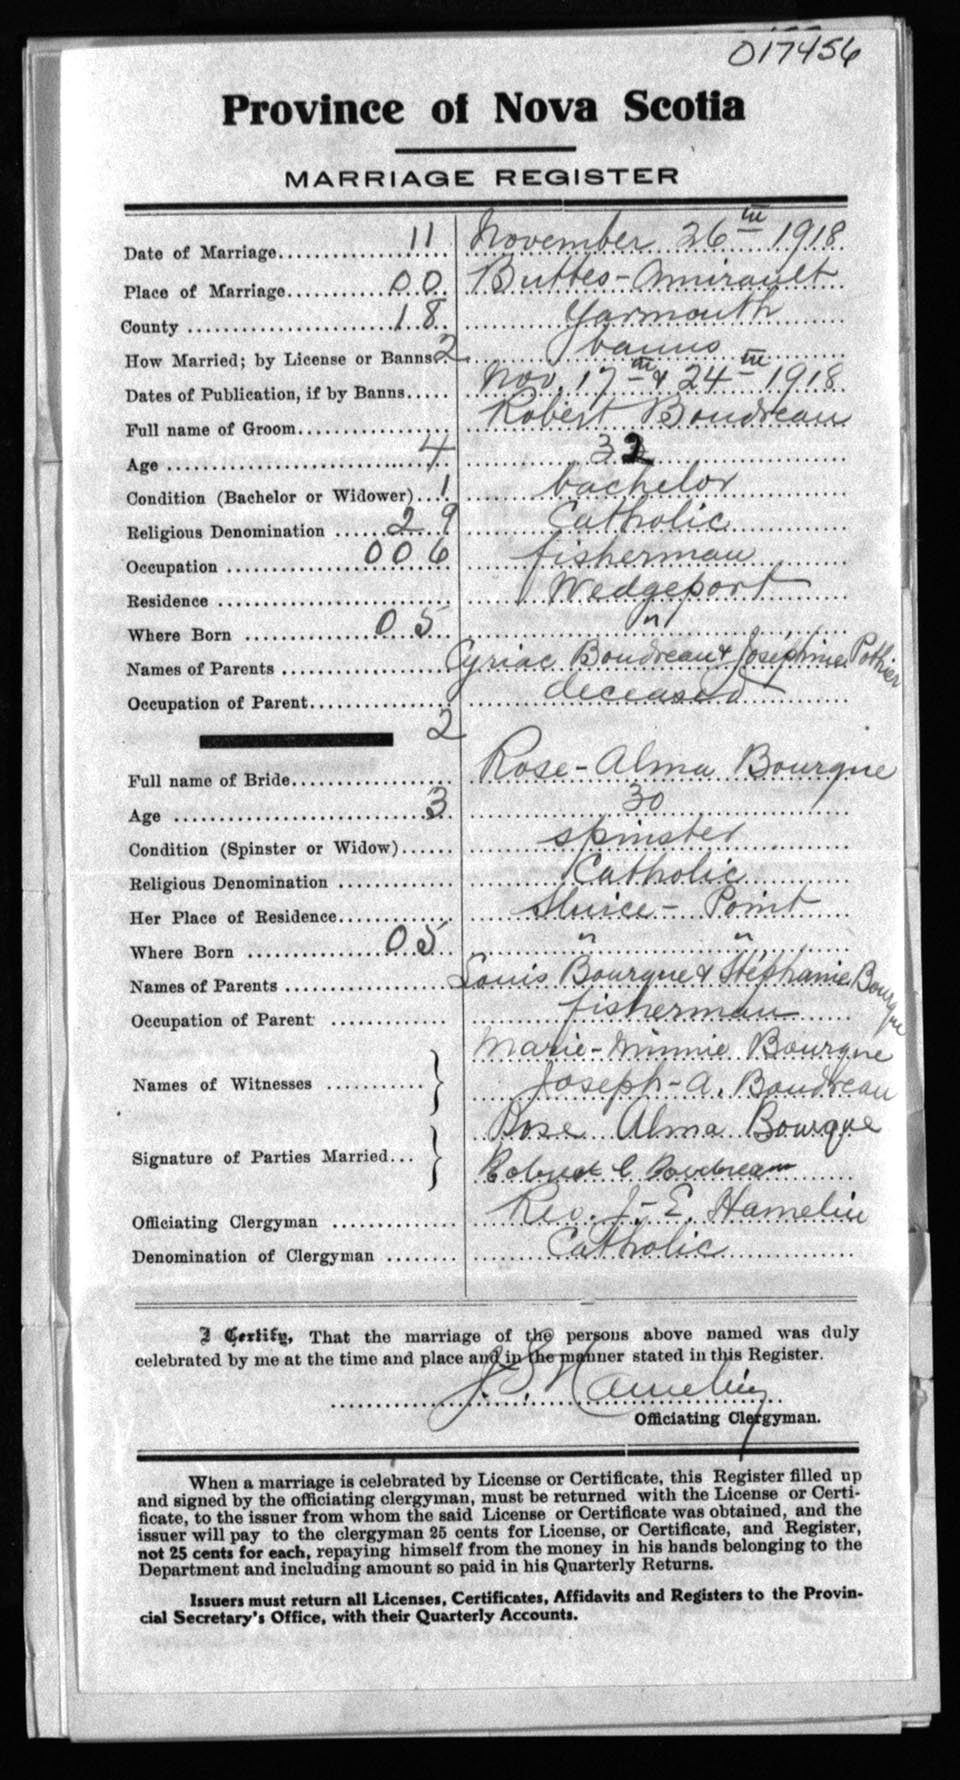 017456
Province of Nova Scotia
MARRIAGE REGISTER
Date of Marriage 11 November 26th 1918
Place of Marriage 00 Buttes-Amirault
County 18 Yarmouth
How Married; by License or Banns 2 banns
Dates of Publication, if by Banns Nov. 17th & 24th 1918
Full name of Groom Robert Boudreau
Age 4 32
Condition (Bachelor or Widower) 1 bachelor
Religious Denomination 29 Catholic
Occupation 006 fisherman
Residence Wedgeport
Where Born 05 "
Names of Parents Cyriac Boudreau & Joséphine Pothier
Occupation of Parent deceased
2
Full name of Bride Rose-Alma Bourque
Age 3 30
Condition (Spinster or Widow) spinster
Religious Denomination Catholic
Her Place of Residence Sluice-Point
Where Born 05 " "
Names of Parents Louis Bourque & Stéphanie Bourque
Occupation of Parent fisherman
Marie-Minnie Bourque
Names of Witnesses } Joseph-A. Boudreau
Rose Alma Bourque
Signature of Parties Married }
Robert C Boudreau
Officiating Clergyman Rev. J.-E. Hamelin
Denomination of Clergyman Catholic
I Certify, That the marriage of the persons above named was duly
celebrated by me at the time and place and in the manner stated in this Register.
J. E. Hamelin
Officiating Clergyman.
When a marriage is celebrated by License or Certificate, this Register filled up
and signed by the officiating clergyman, must be returned with the License or Certi-
ficate, to the issuer from whom the said License or Certificate was obtained, and the
issuer will pay to the clergyman 25 cents for License, or Certificate, and Register,
not 25 cents for each, repaying himself from the money in his hands belonging to the
Department and including amount so paid in his Quarterly Returns.
Issuers must return all Licenses, Certificates, Affidavits and Registers to the Provin-
cial Secretary's Office, with their Quarterly Accounts.